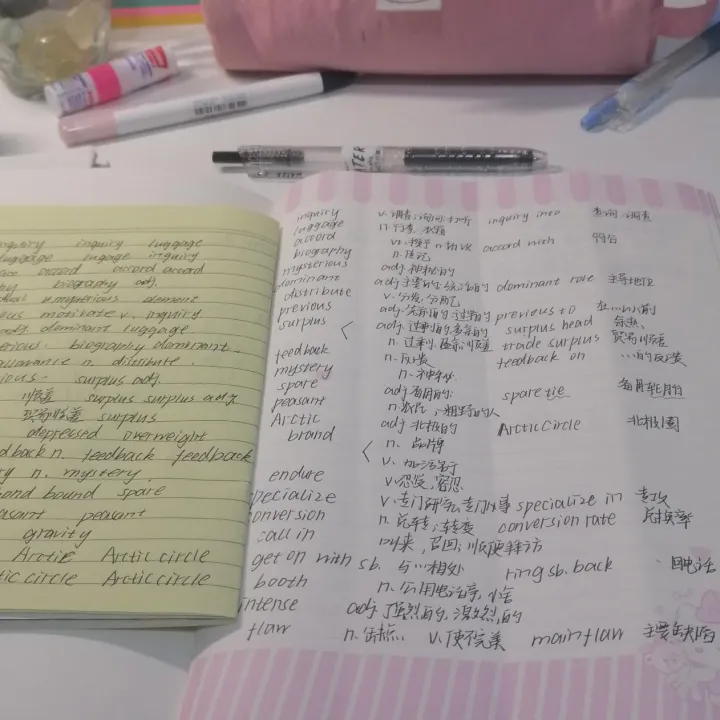 inquiry inquiry luggage
luggage lugage inquiry
accord accord accord
biography adj.
mysterious element
motivate v. inquiry
adj. dominant luggage
biography dominant
n. distribute.
surplus adj.
顺差 surplus surplus adj
贸易顺差 surplus
depressed overweight
feedback n. feedback feedback
n. mystery
bound spare
peasant peasant
gravity
Arctic Arctic circle
Arctic circle Arctic circle
inquiry v. 调查;询问;打听 inquiry into 查询,调查
luggage n. 行李,
accord accord with 符合
biography n. 传记
mysterious adj. 神秘的
dominant adj 主要的; dominant role 主导地位
distribute v. 分发,分配
previous adj. 先前的 previous to 在……之前
surplus adj. 过剩的,多余的 surplus head 余热
n. 过剩, trade surplus 贸易顺差
feedback n. 反馈 feedback on ...的反馈
mystery n. 神秘
spare adj 备用的 spare tie 备用轮胎
peasant n. 农民;粗野的人
Arctic adj 北极的 Arctic Circle 北极圈
brand n. 品牌
v.
endure v. 忍受,容忍
specialize v. 专门研究,专门从事 specialize in 专攻
conversion n. 转变 conversion rate 转换率
call in 叫来,召回;顺便拜访
get on with sb. 与…相处 ring sb. back 回电话
booth n. 公用电话亭,
intense adj 强烈的,激烈的
flaw n. 缺点 v. 使不完美 main flaw 主要缺陷